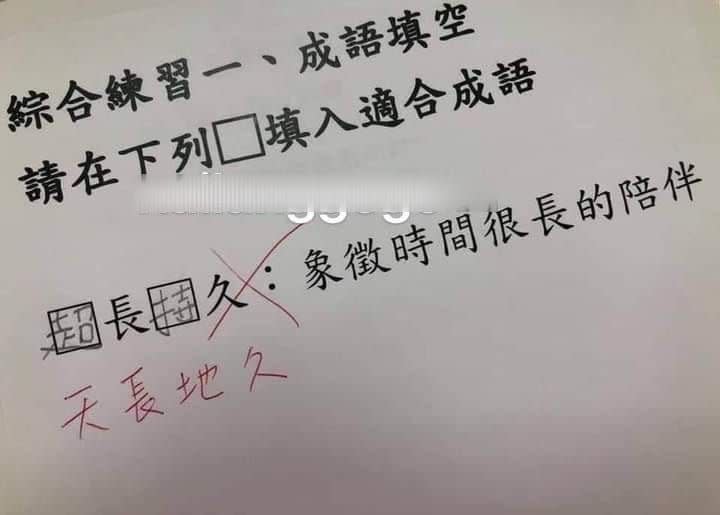 綜合練習一、成語填空
請在下列□填入適合成語
超長持久：象徵時間很長的陪伴
天長地久